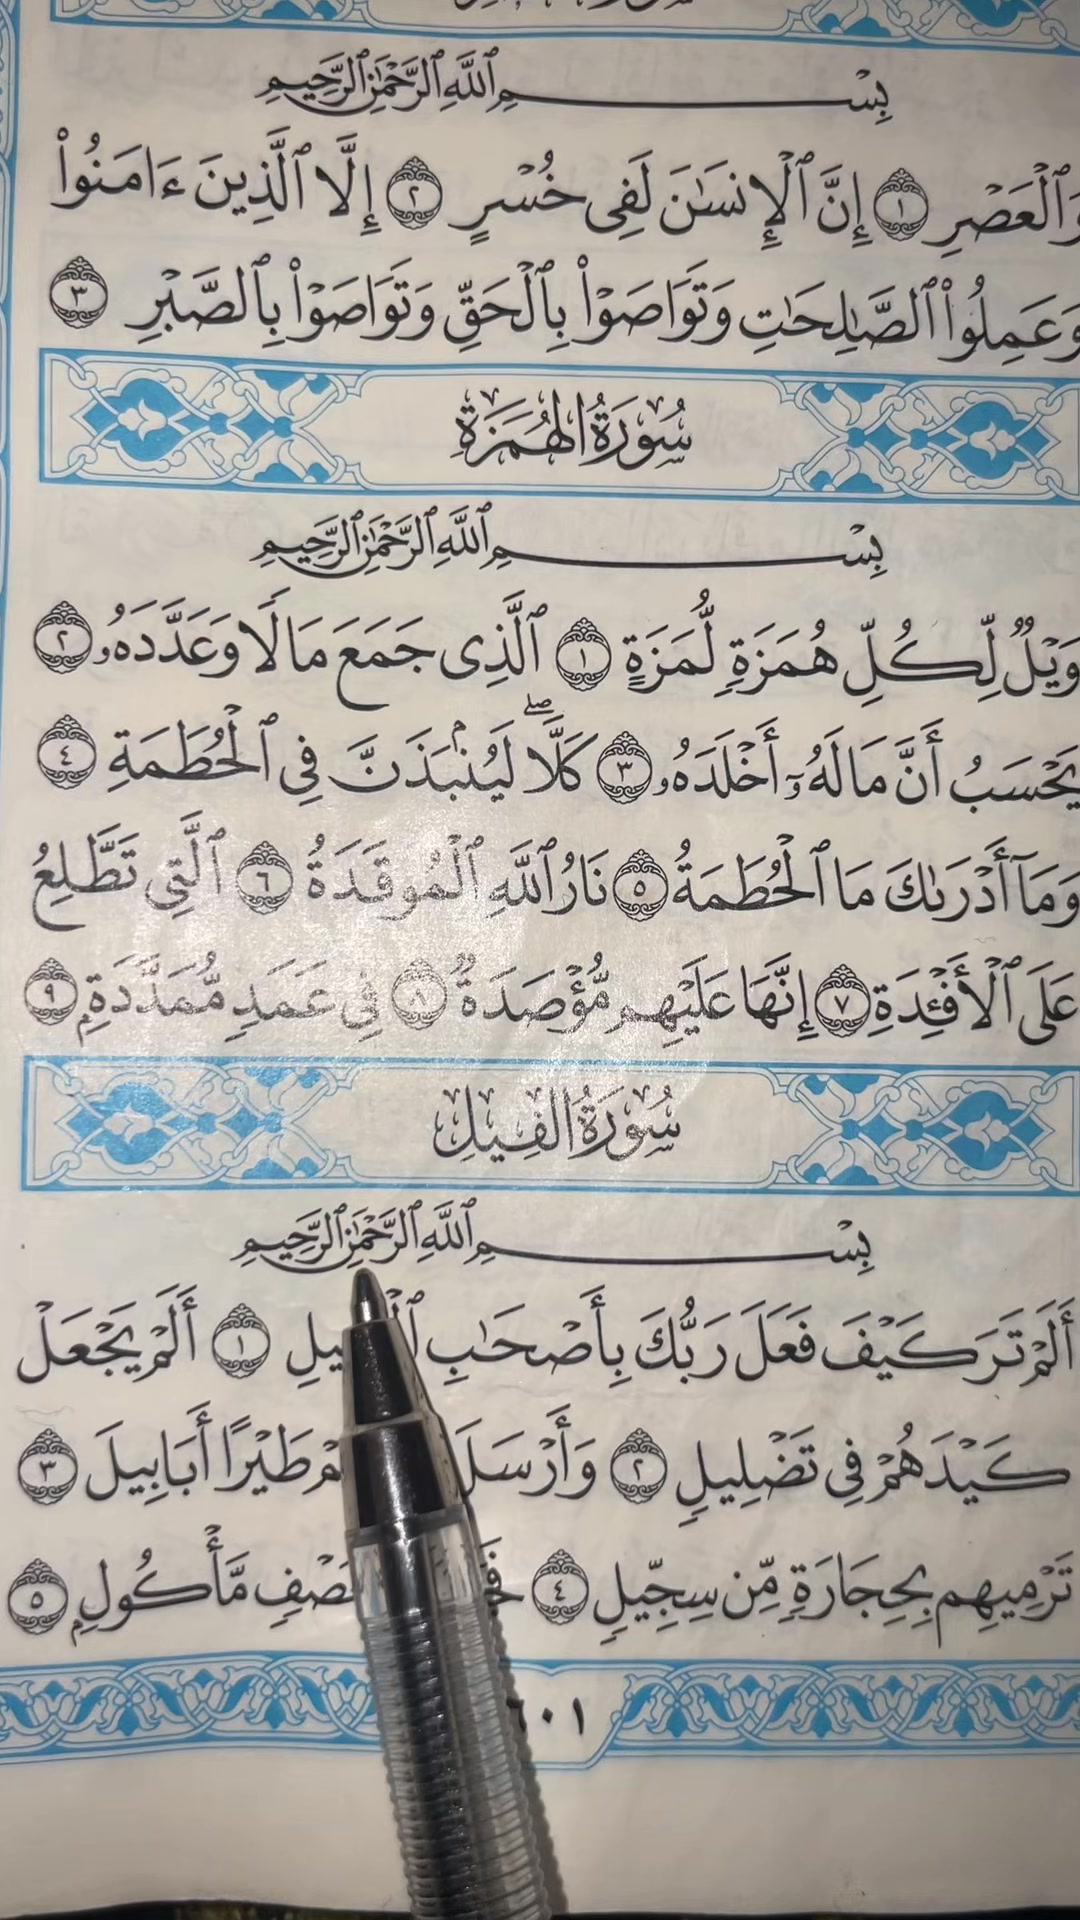 بِسْمِ ٱللَّهِ ٱلرَّحْمَٰنِ ٱلرَّحِيمِ
وَٱلْعَصْرِ ١ إِنَّ ٱلْإِنسَٰنَ لَفِى خُسْرٍ ٢ إِلَّا ٱلَّذِينَ ءَامَنُوا۟
وَعَمِلُوا۟ ٱلصَّٰلِحَٰتِ وَتَوَاصَوْا۟ بِٱلْحَقِّ وَتَوَاصَوْا۟ بِٱلصَّبْرِ ٣
سُورَةُ الهُمَزَةِ
بِسْمِ ٱللَّهِ ٱلرَّحْمَٰنِ ٱلرَّحِيمِ
وَيْلٌ لِّكُلِّ هُمَزَةٍ لُّمَزَةٍ ١ ٱلَّذِى جَمَعَ مَالًا وَعَدَّدَهُۥ ٢
يَحْسَبُ أَنَّ مَالَهُۥٓ أَخْلَدَهُۥ ٣ كَلَّا ۖ لَيُنۢبَذَنَّ فِى ٱلْحُطَمَةِ ٤
وَمَآ أَدْرَىٰكَ مَا ٱلْحُطَمَةُ ٥ نَارُ ٱللَّهِ ٱلْمُوقَدَةُ ٦ ٱلَّتِى تَطَّلِعُ
عَلَى ٱلْأَفْـِٔدَةِ ٧ إِنَّهَا عَلَيْهِم مُّؤْصَدَةٌ ٨ فِى عَمَدٍ مُّمَدَّدَةٍۭ ٩
سُورَةُ الفِيلِ
بِسْمِ ٱللَّهِ ٱلرَّحْمَٰنِ ٱلرَّحِيمِ
أَلَمْ تَرَ كَيْفَ فَعَلَ رَبُّكَ بِأَصْحَٰبِ ١ أَلَمْ يَجْعَلْ
كَيْدَهُمْ فِى تَضْلِيلٍ ٢ وَأَرْسَلَ طَيْرًا أَبَابِيلَ ٣
تَرْمِيهِم بِحِجَارَةٍ مِّن سِجِّيلٍ ٤ مَّأْكُولٍۭ ٥